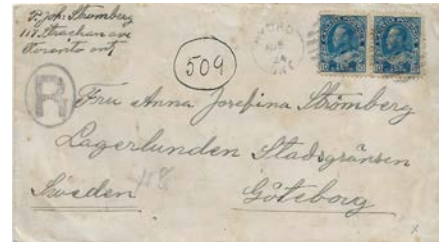 P. Joh: Strömberg
117. Strachan ave
Toronto ont
509
R
Fru Anna Josefina Strömberg
Lagerlunden Stadsgränsen
Sweden
Göteborg